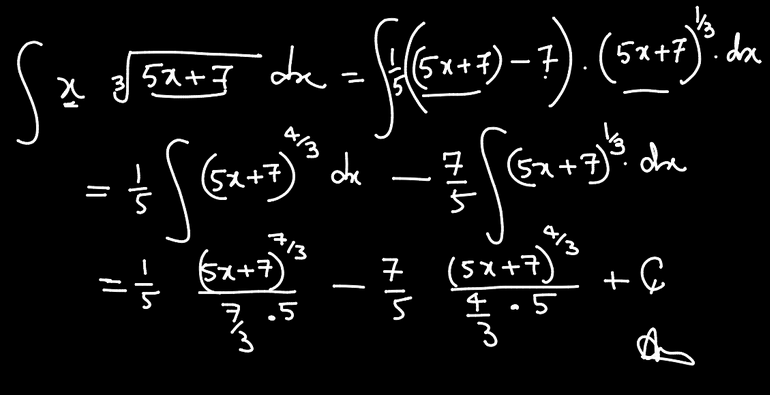 ∫ x ∛(5x+7) dx = ∫ 1/5 ((5x+7) - 7) · (5x+7)^{1/3} · dx
= 1/5 ∫ (5x+7)^{4/3} dx - 7/5 ∫ (5x+7)^{1/3} · dx
= 1/5 (5x+7)^{7/3} / (7/3 · 5) - 7/5 (5x+7)^{4/3} / (4/3 · 5) + C